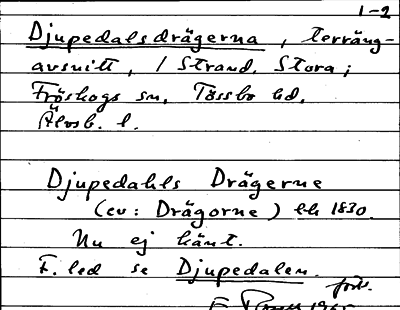 1-2
Djupedalsdrägerna, terräng-
avsnitt, / Strand, Stora;
Fröskogs sn, Tössbo hd,
Älvsb. l.
Djupedahls Drägerne
(ev: Drägorne) lhk 1830.
Nu ej känt.
F. led se Djupedalen.
forts.